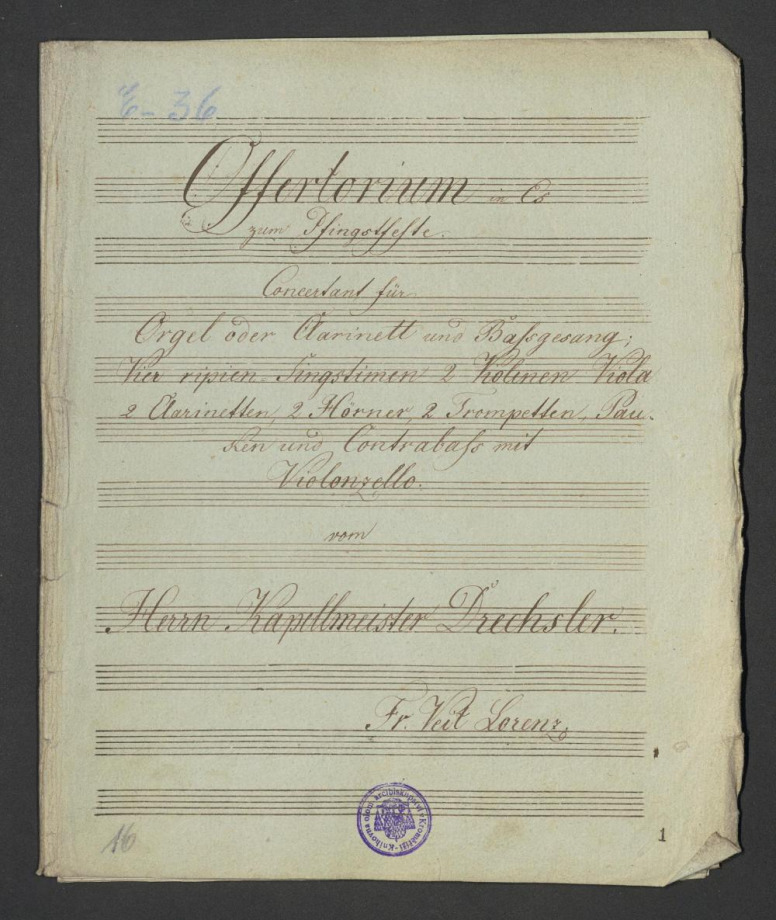 E-36
Offertorium in Es
zum Pfingstfeste.
Concertant für
Orgel oder Clarinett und Baſsgesang;
Vier ripien-Singstimen 2 Violinen Viola
2 Clarinetten, 2 Hörner, 2 Trompetten, Pau-
ken und Contrabaſs mit
Violonzello.
vom
Herrn Kapellmeister Drechsler.
Fr. Veit Lorenz
Knihovna olom. arcibiskupství v Kroměříži
16
1